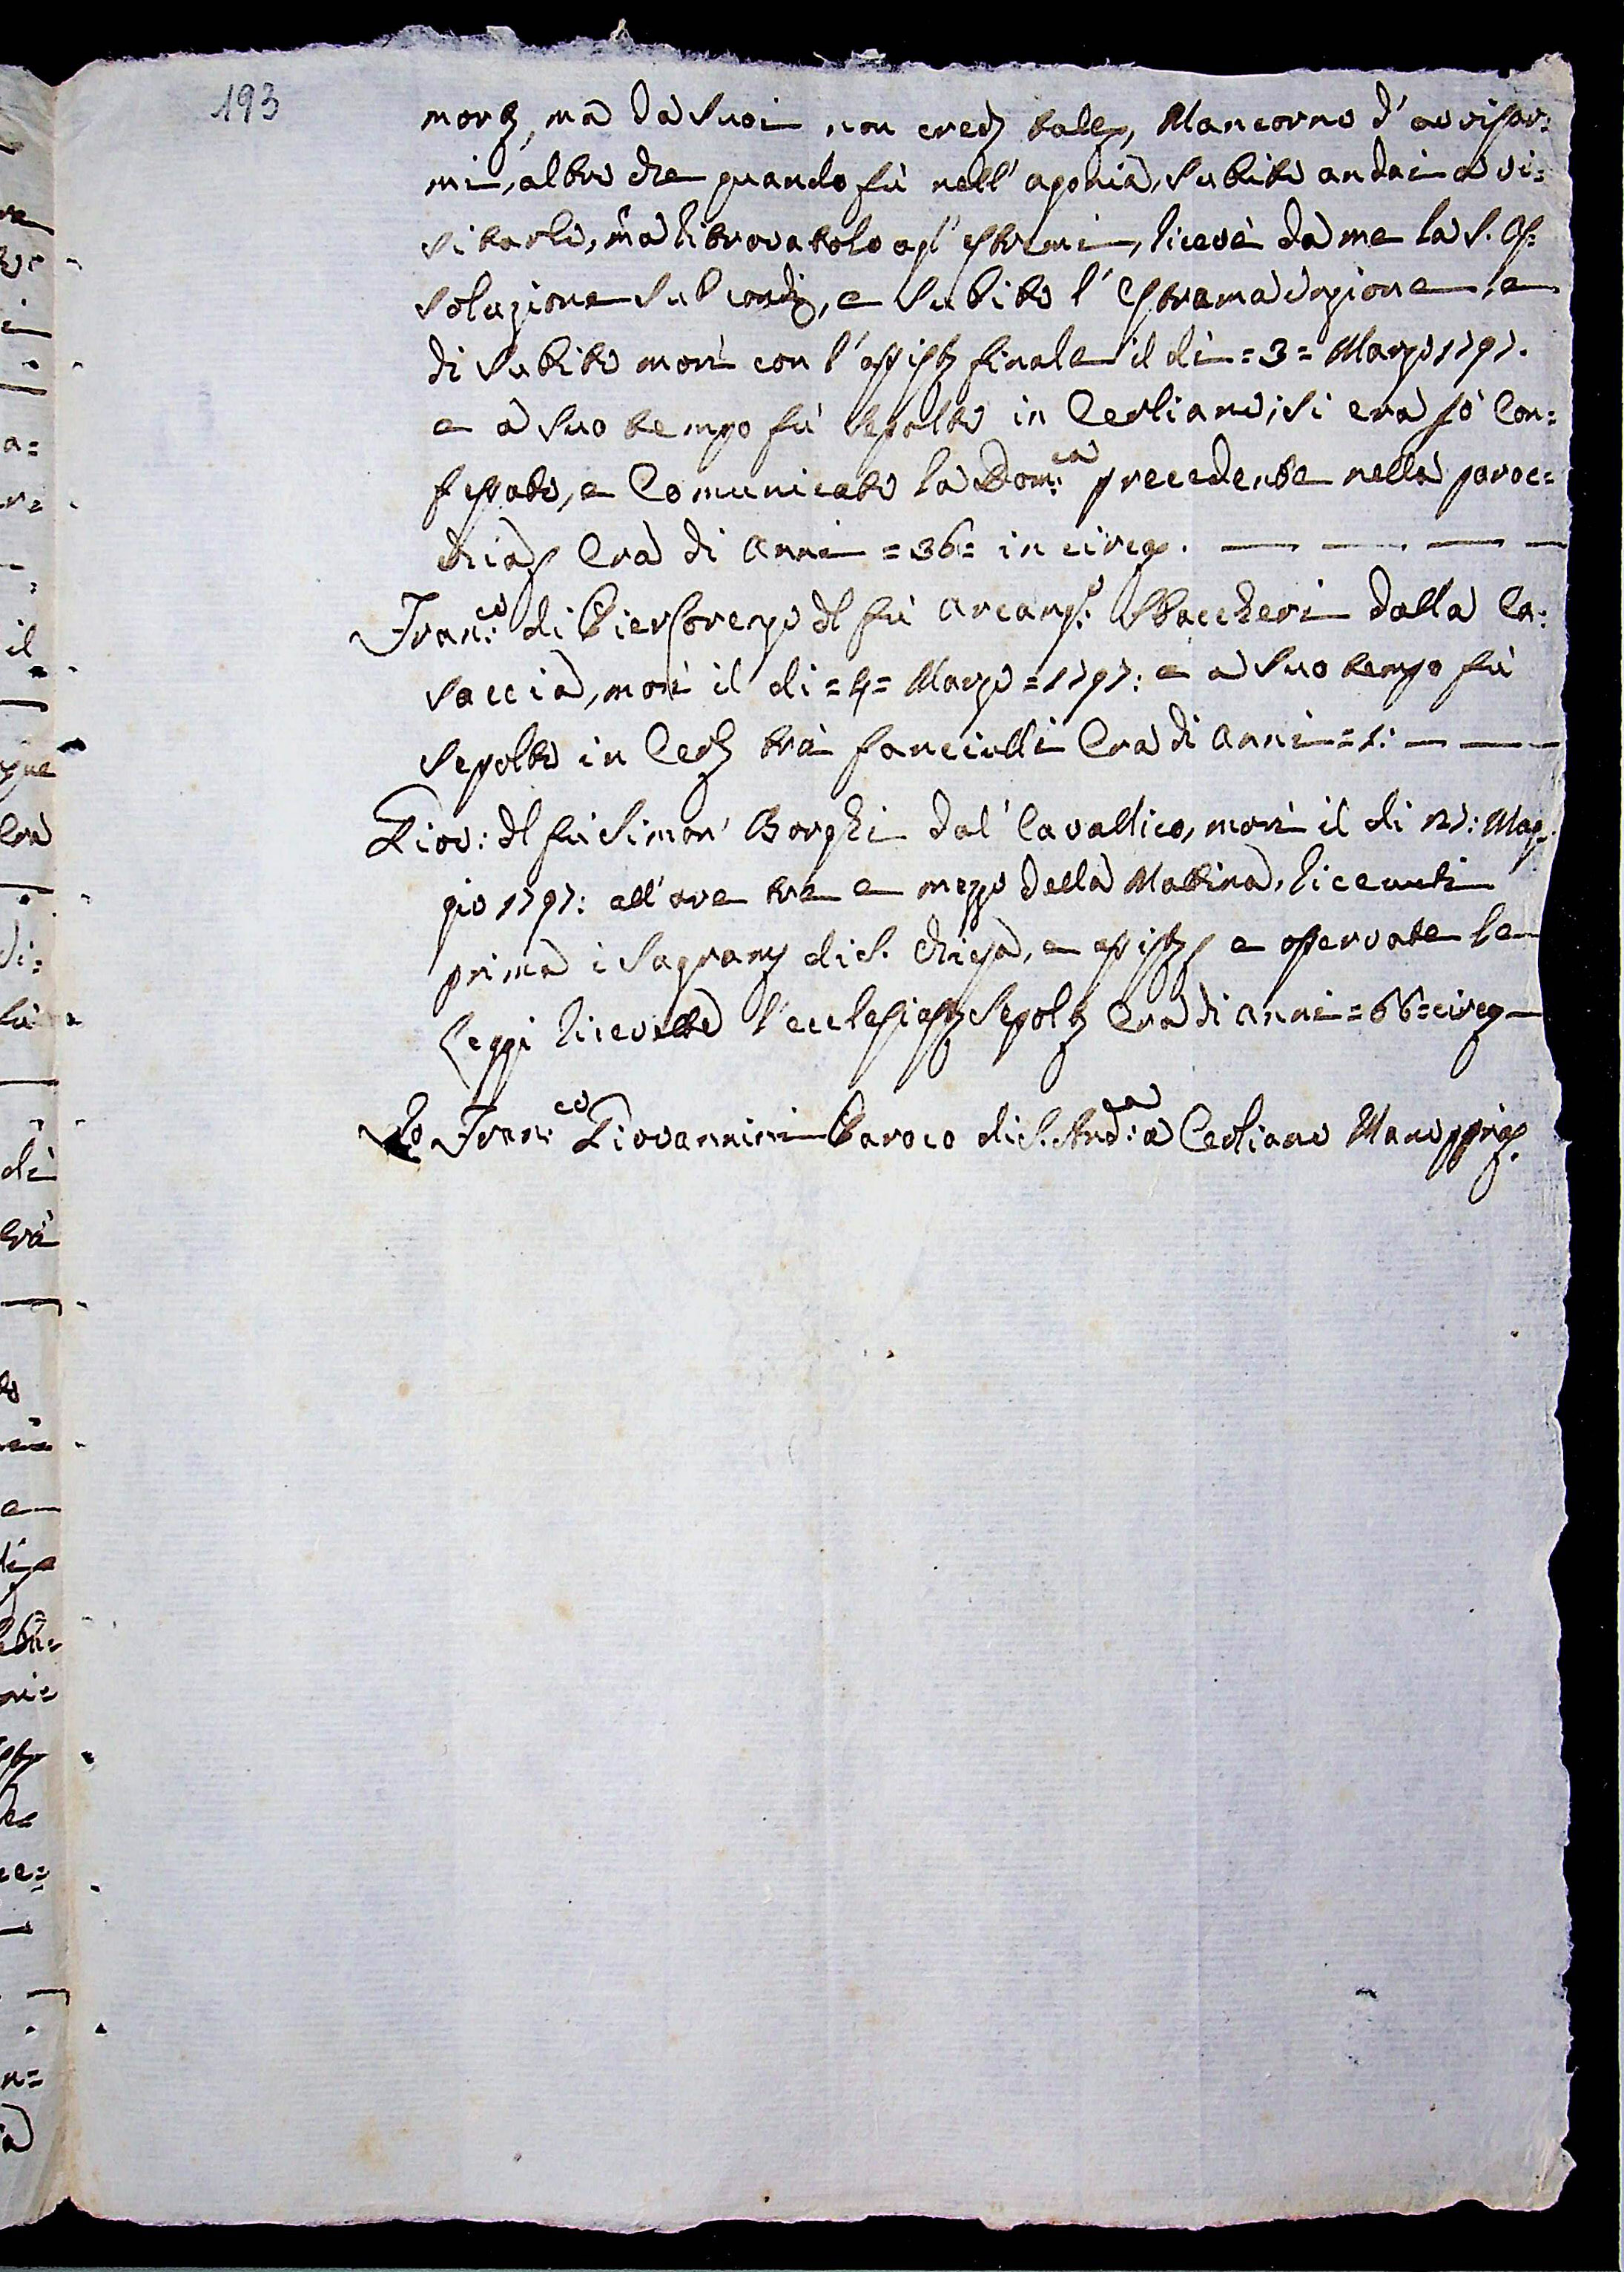 193
mort, ma da suoi non cred tale, Mancorno d'avvisar:
mi, altro che quando fù nell' agonia, subito andai a vi:
sitarlo, ma ritrovatolo agl' estremi, ricevè da me la S. As:
soluzione sub cond, e subito l' Estrema Unzione, e
di subito morì con l'assist finale il dì = 3 = Marzo 1797.
e a suo tempo fù sepolto in Cerliano, si era pò Con:
fessato, e Comunicato la Dom:ca precedente nella paroc:
chia, Era di Anni = 36 = in circa. — — — —
Fran:co di Pier Lorenzo dl fù Arcang:o Sbaccheri dalla Ca:
saccia, morì il di = 4 = Marzo = 1797: e a suo tempo fù
sepolto in Cerl trà fanciulli Era di Anni = 1: — — —
Giov: dl fù Simon' Borghi dal' Cavallico, morì il di 27: Mag:
gio 1797: all'ore tre e mezzo della Mattina, ricevuti
prima i Sagram di S. Chiesa, e assist e osservate le
leggi ricevette l'ecclesiast Sepolt Era di Anni = 66 = circa —
Io Fran:co Giovannini Paroco di S. And:ea a Cerliano Mano ppria